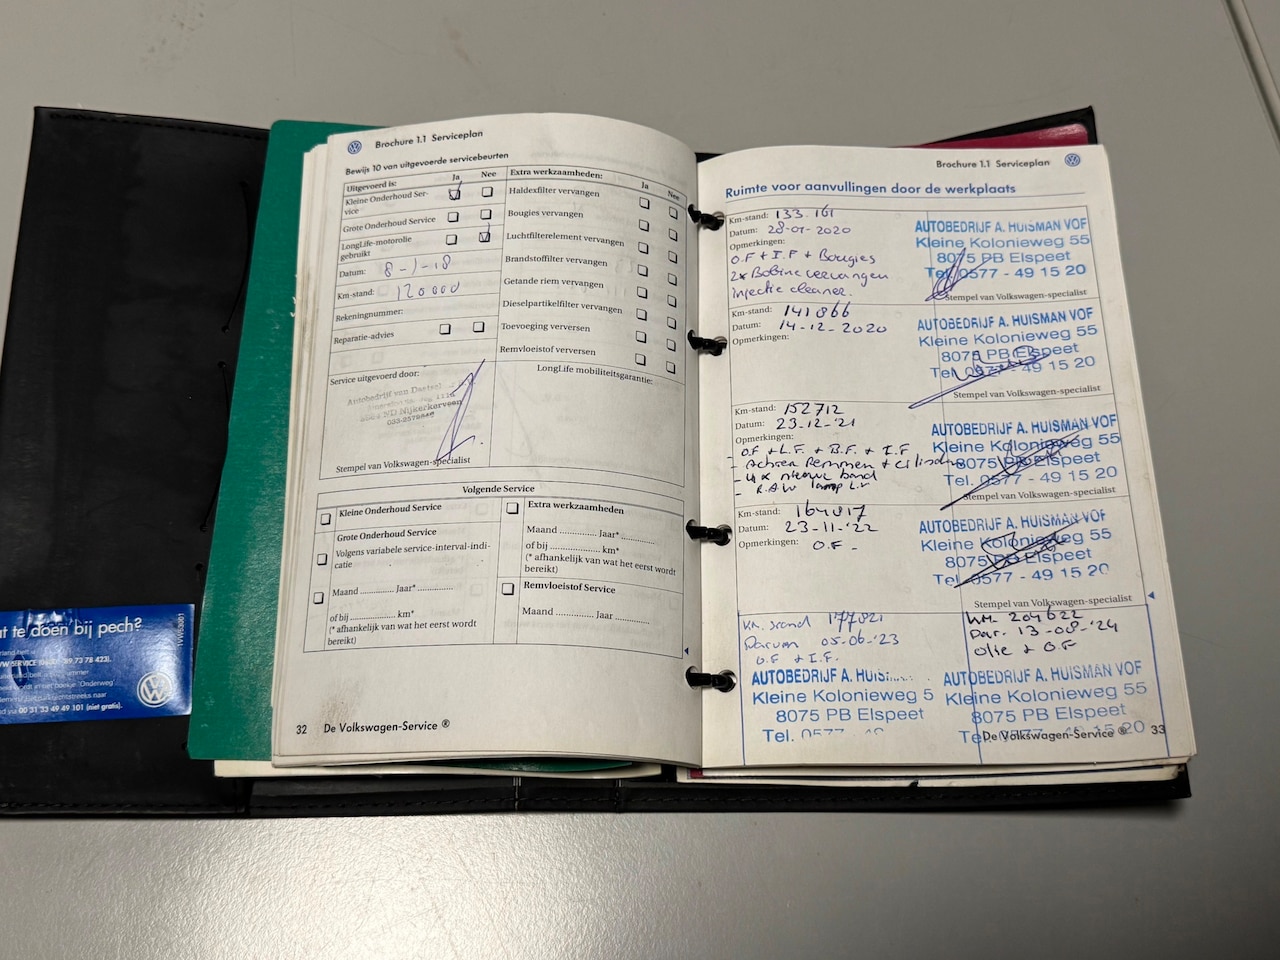 Brochure 1.1 Serviceplan
Bewijs 10 van uitgevoerde servicebeurten
Uitgevoerd is: Ja Nee
Kleine Onderhoud Ser-
vice
Grote Onderhoud Service
LongLife-motorolie
gebruikt
Datum: 8-1-18
Km-stand: 120000
Rekeningnummer:
Reparatie-advies
Extra werkzaamheden: Ja Nee
Haldexfilter vervangen
Bougies vervangen
Luchtfilterelement vervangen
Brandstoffilter vervangen
Getande riem vervangen
Dieselpartikelfilter vervangen
Toevoeging verversen
Remvloeistof verversen
Service uitgevoerd door:
Autobedrijf van
ND Nijkerkerveen
Stempel van Volkswagen-specialist
LongLife mobiliteitsgarantie:
Volgende Service
Kleine Onderhoud Service
Grote Onderhoud Service
Volgens variabele service-interval-indi-
catie
Maand ............ Jaar* ..............
of bij ................ km*
(* afhankelijk van wat het eerst wordt
bereikt)
Extra werkzaamheden
Maand ............ Jaar* ............
of bij ................ km*
(* afhankelijk van wat het eerst wordt
bereikt)
Remvloeistof Service
Maand ............ Jaar ............
32 De Volkswagen-Service ®
Brochure 1.1 Serviceplan
Ruimte voor aanvullingen door de werkplaats
Km-stand: 133.161
Datum: 28-01-2020
Opmerkingen:
O.F + I.F + Bougies
2x Bobine vervangen
injectie cleaner.
AUTOBEDRIJF A. HUISMAN VOF
Kleine Kolonieweg 55
8075 PB Elspeet
Tel. 0577 - 49 15 20
Stempel van Volkswagen-specialist
Km-stand: 141866
Datum: 14-12-2020
Opmerkingen:
AUTOBEDRIJF A. HUISMAN VOF
Kleine Kolonieweg 55
8075 PB Elspeet
Tel. 0577 - 49 15 20
Stempel van Volkswagen-specialist
Km-stand: 152712
Datum: 23-12-'21
Opmerkingen:
- O.F + L.F. + B.F. + I.F
- Achter Remmen + cilinders
- 4x nieuwe band
- R.A.W lamp L.V
AUTOBEDRIJF A. HUISMAN VOF
Kleine Kolonieweg 55
8075 PB Elspeet
Tel. 0577 - 49 15 20
Stempel van Volkswagen-specialist
Km-stand: 164817
Datum: 23-11-'22
Opmerkingen: O.F -
AUTOBEDRIJF A. HUISMAN VOF
Kleine Kolonieweg 55
8075 PB Elspeet
Tel. 0577 - 49 15 20
Stempel van Volkswagen-specialist
KM. stand 177821
Datum 05-06-'23
O.F + I.F.
AUTOBEDRIJF A. HUIS
Kleine Kolonieweg 5
8075 PB Elspeet
Tel. 0577 - 49
KM. 204622
Dat. 13-08-'24
Olie + O.F
AUTOBEDRIJF A. HUISMAN VOF
Kleine Kolonieweg 55
8075 PB Elspeet
Tel. 0577 - 49 15 20
De Volkswagen-Service ® 33
at te doen bij pech?
VW SERVICE
via 00 31 33 49 49 101 (niet gratis).